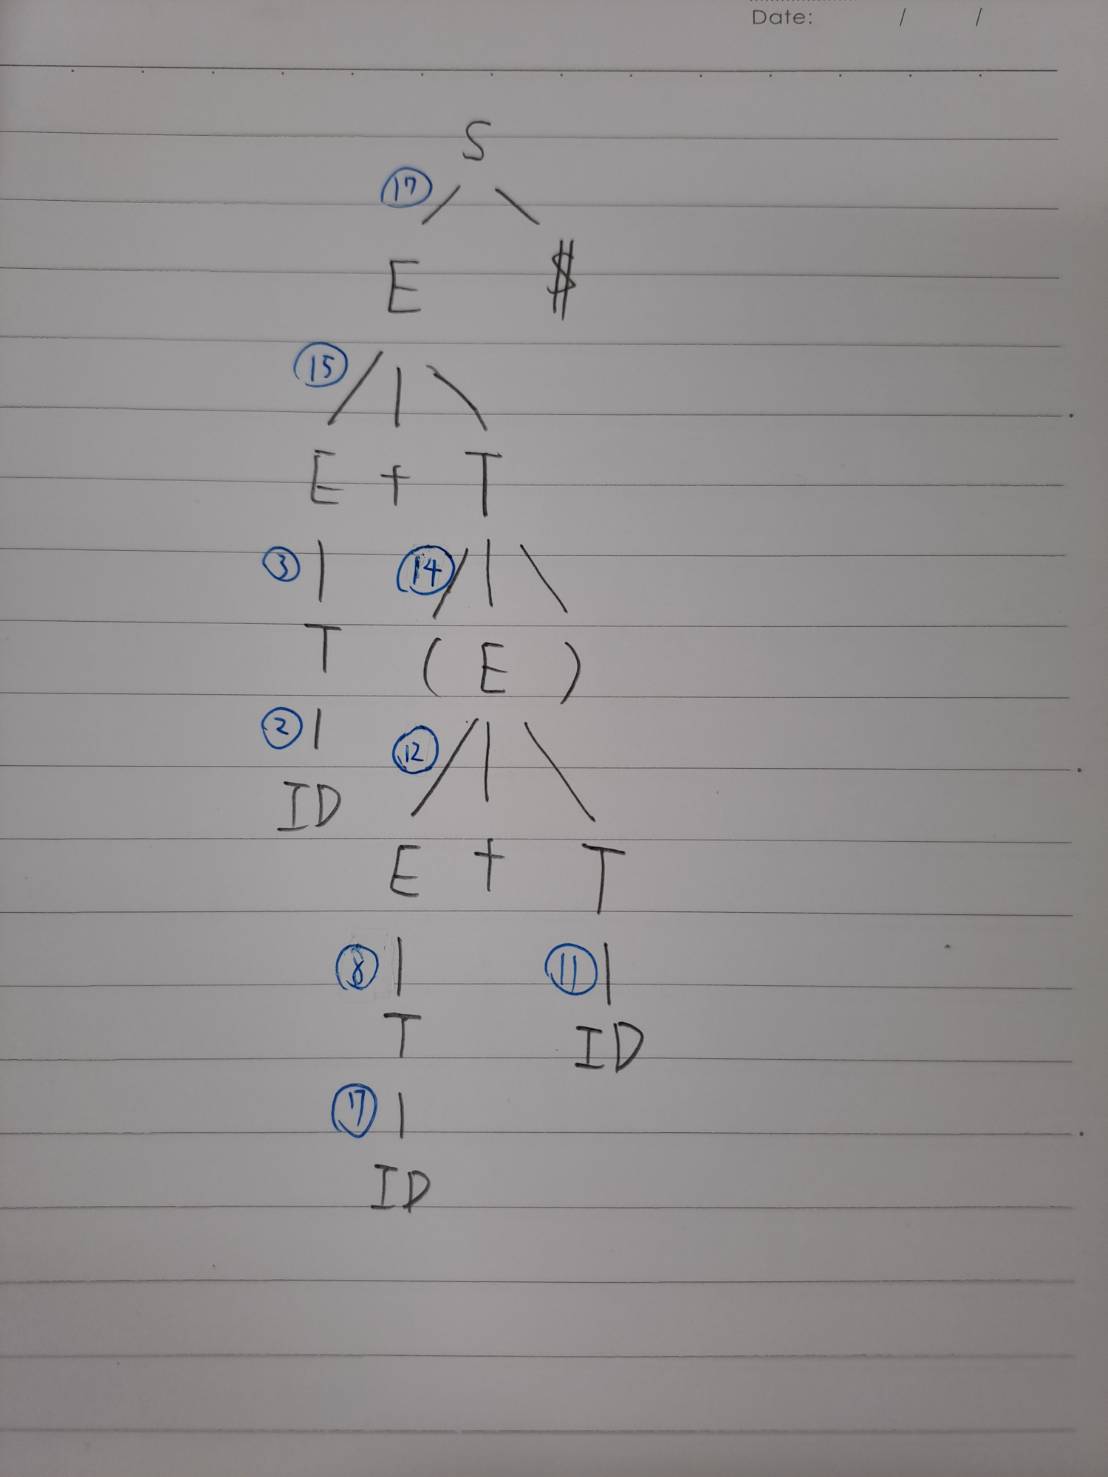 Date: / /
S
17
E $
15
E + T
3 14
T ( E )
2 12
ID
E + T
8 11
T ID
7
ID